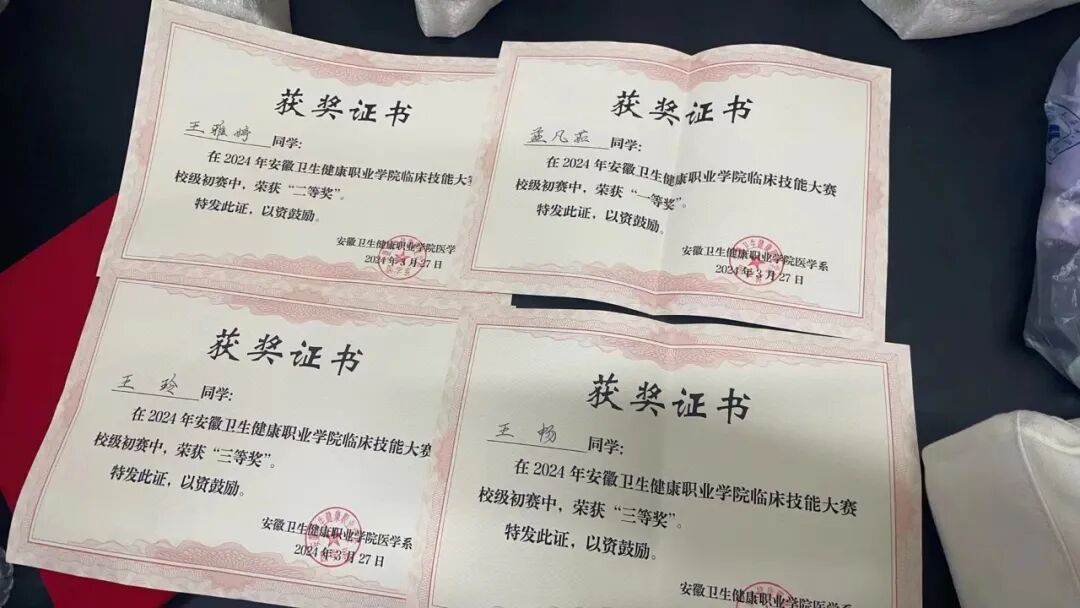 获奖证书
王雅婷 同学:
在 2024 年安徽卫生健康职业学院临床技能大赛
校级初赛中，荣获“二等奖”。
特发此证，以资鼓励。
安徽卫生健康职业学院医学
2024 年 3 月 27 日
获奖证书
孟凡茹 同学:
在 2024 年安徽卫生健康职业学院临床技能大赛
校级初赛中，荣获“一等奖”。
特发此证，以资鼓励。
安徽卫生健康职业学院医学系
2024 年 3 月 27 日
获奖证书
王 玲 同学:
在 2024 年安徽卫生健康职业学院临床技能大赛
校级初赛中，荣获“三等奖”。
特发此证，以资鼓励。
安徽卫生健康职业学院医学系
2024 年 3 月 27 日
获奖证书
王 畅 同学:
在 2024 年安徽卫生健康职业学院临床技能大赛
校级初赛中，荣获“三等奖”。
特发此证，以资鼓励。
安徽卫生健康职业学院医学系